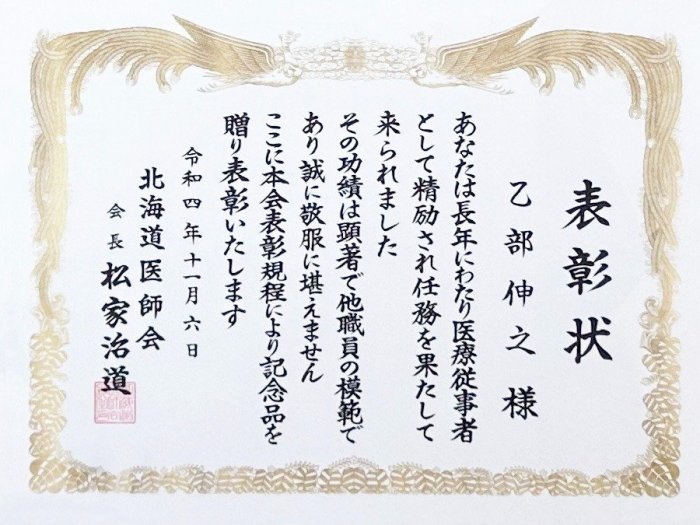 表彰状
乙部伸之様
あなたは長年にわたり医療従事者
として精励され任務を果たして
来られました
その功績は顕著で他職員の模範で
あり誠に敬服に堪えません
ここに本会表彰規程により記念品を
贈り表彰いたします
令和四年十一月六日
北海道医師会
会長 松家治道